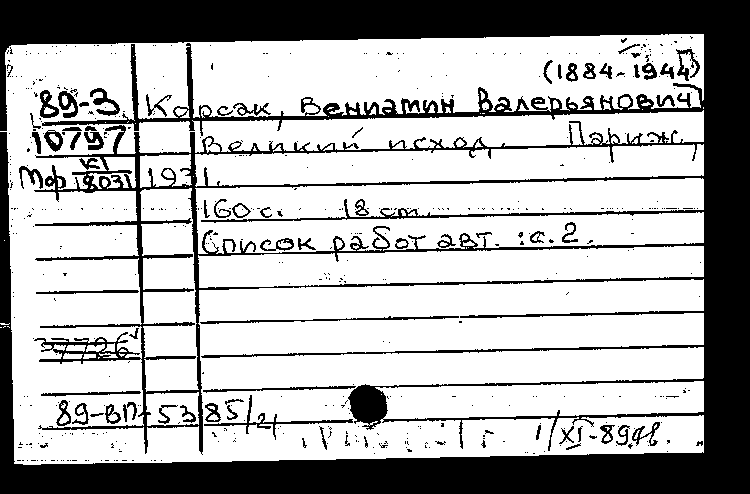 (1884-1944)
89-3 Корсак, Вениамин Валерьянович
10797 Великий исход. Париж,
Мф К1/18031 1931.
160 с. 18 см.
Список работ авт.: с. 2.
37726
89-ВП-5385/21
1/XI-89